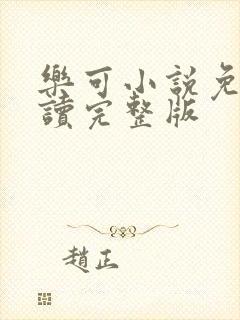 樂可小說免
讀完整版
趙正